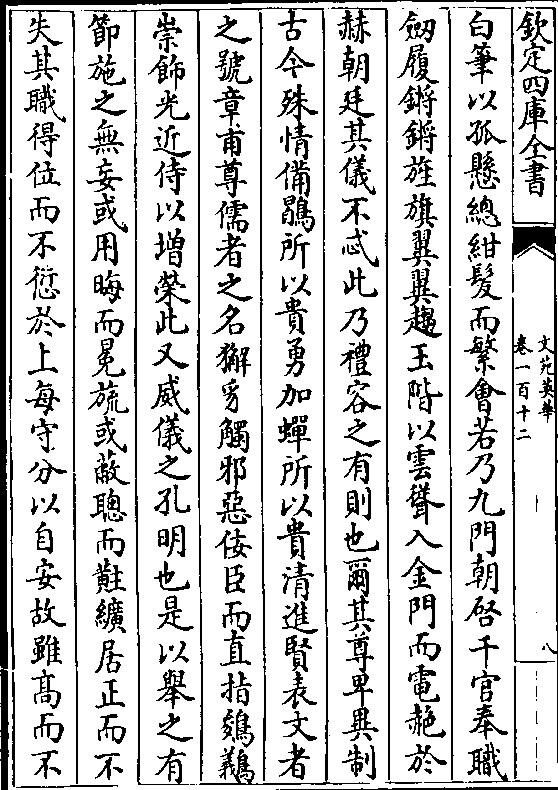 欽定四庫全書
文苑英華
卷一百十二
八
白筆以孤懸總紺髮而繁會若乃九門朝啓千官奉職
劒履鏘鏘旌旗翼翼趨玉階以雲聳入金門而電赩於
赫朝廷其儀不忒此乃禮容之有則也爾其尊卑異制
古今殊情備鶡所以貴勇加蟬所以貴清進賢表文者
之號章甫尊儒者之名獬豸觸邪惡佞臣而直指鵕䴊
崇飾光近侍以增榮此又威儀之孔明也是以舉之有
節施之無妄或用晦而冕旒或蔽聰而黈纊居正而不
失其職得位而不愆於上每守分以自安故雖髙而不